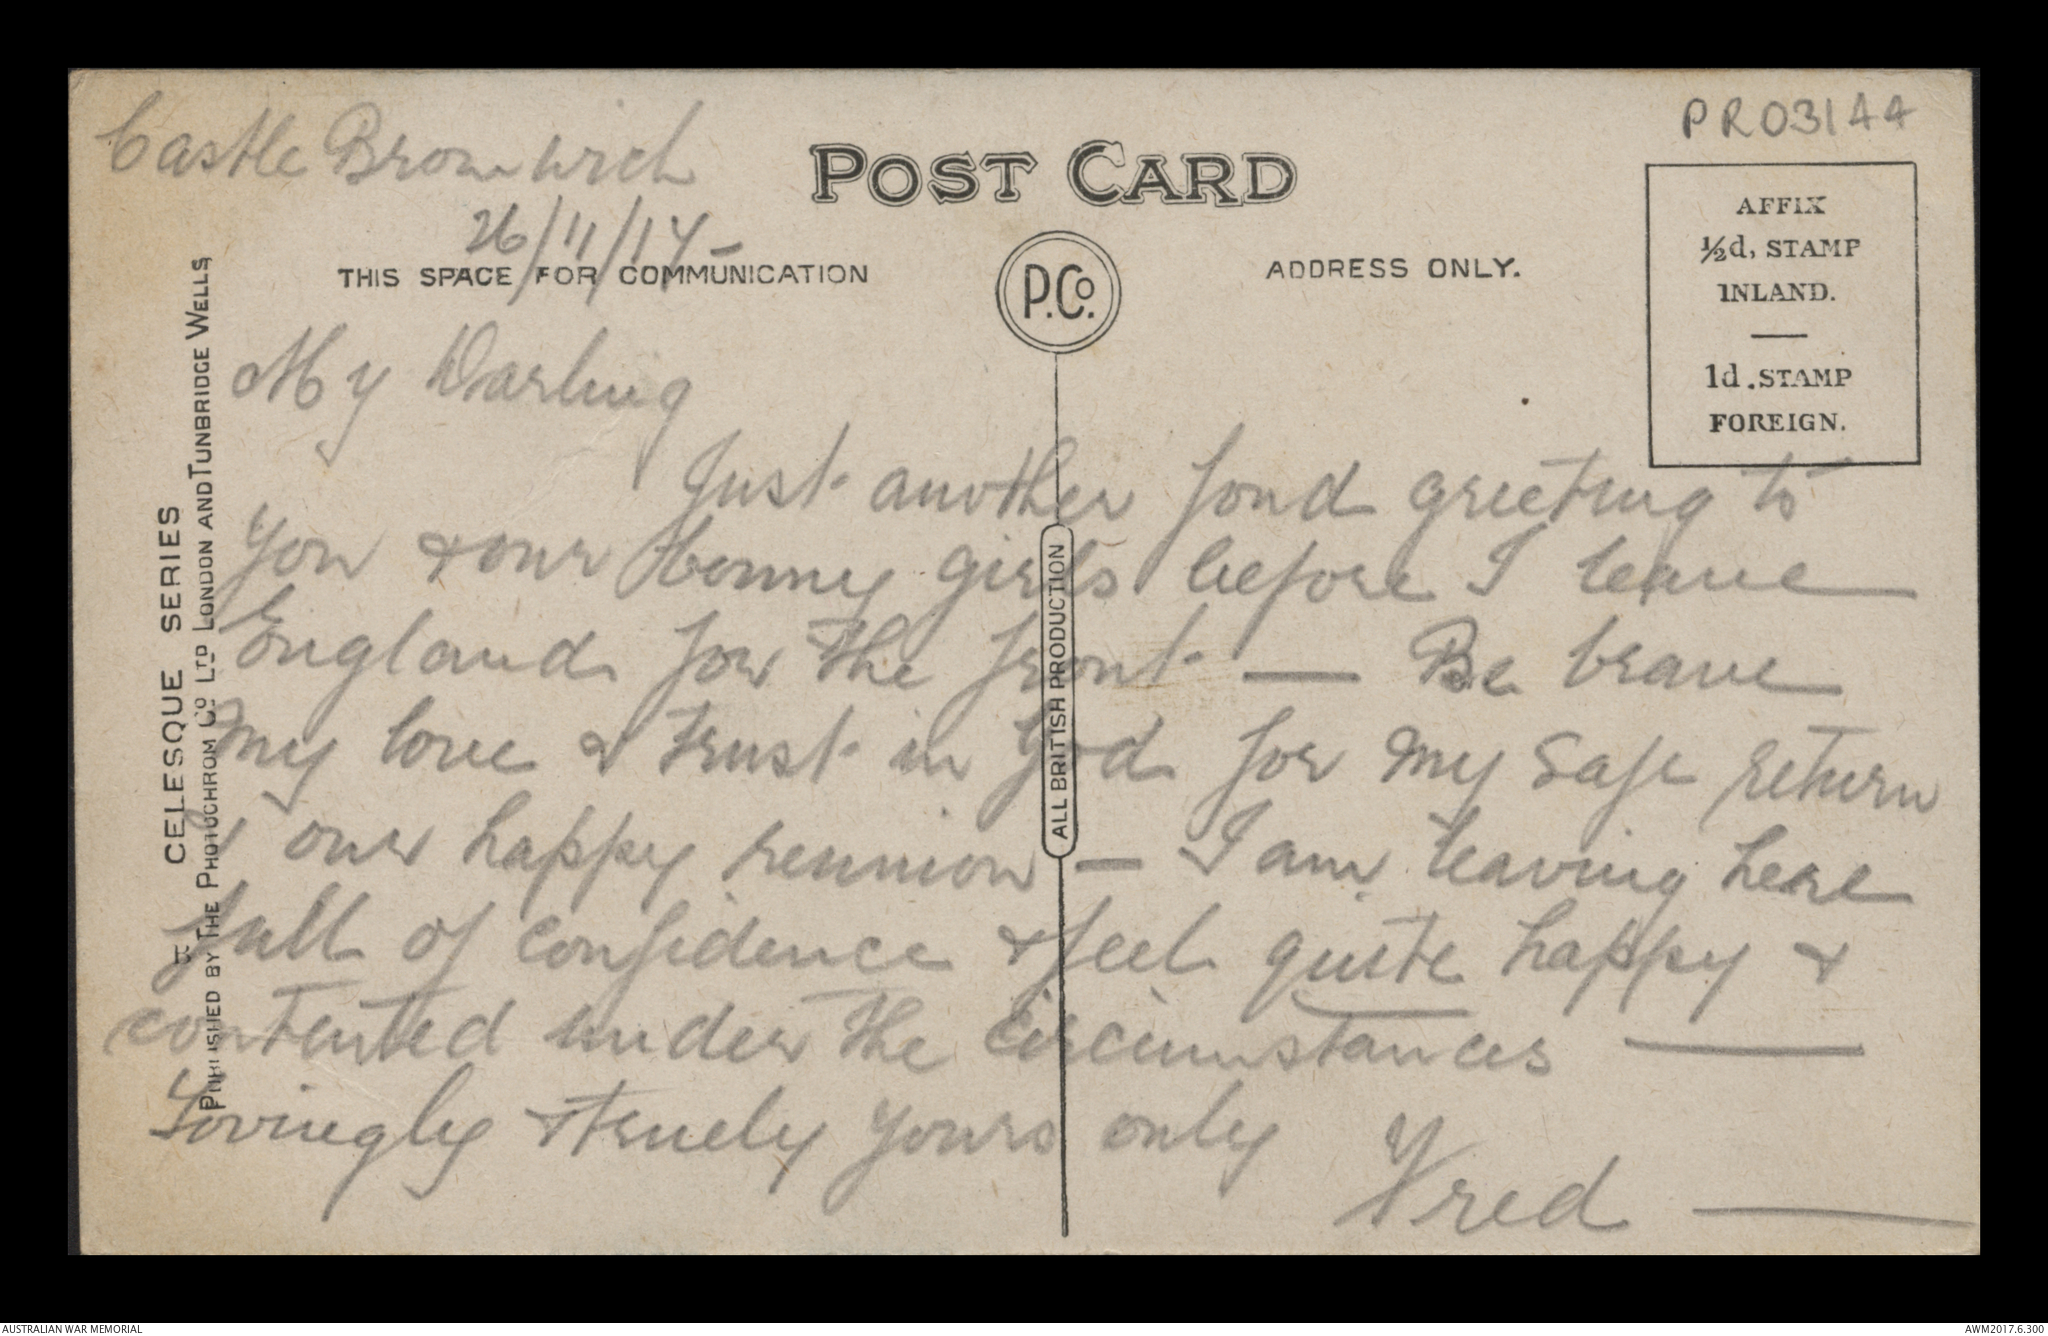 PR03144
Castle Bromwich
26/11/17-
POST CARD
THIS SPACE FOR COMMUNICATION
ADDRESS ONLY.
AFFIX
½d, STAMP
INLAND.
1d. STAMP
FOREIGN.
P.Co.
CELESQUE SERIES
PUBLISHED BY THE PHOTOCHROM Co LTD LONDON AND TUNBRIDGE WELLS
ALL BRITISH PRODUCTION
My Darling
Just another fond greeting to
you & our bonny girls before I leave
England for the front — Be brave
my love & trust in God for my safe return
& our happy reunion — I am leaving here
full of confidence & feel quite happy &
contented under the circumstances —
Lovingly & truely yours only
Fred —
AUSTRALIAN WAR MEMORIAL
AWM2017.6.300